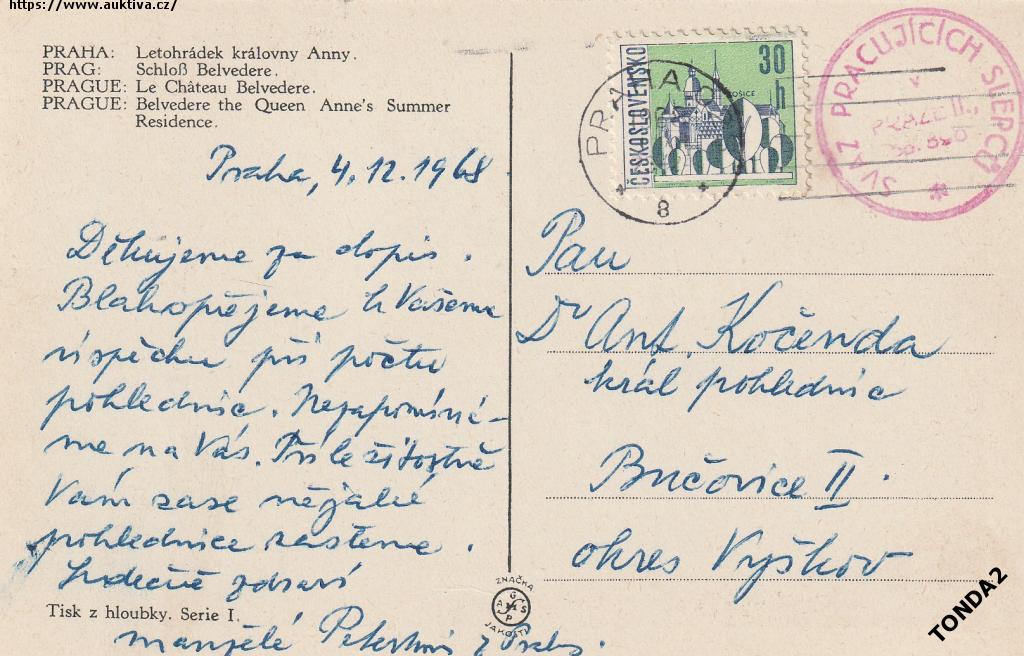 https://www.auktiva.cz/
PRAHA: Letohrádek královny Anny.
PRAG: Schloß Belvedere.
PRAGUE: Le Château Belvedere.
PRAGUE: Belvedere the Queen Anne's Summer
Residence.
Praha, 4.12.1968.
Děkujeme za dopis.
Blahopřejeme k Vašemu
úspěchu při počtu
pohlednic. Nezapomíná-
me na Vás. Příležitostně
Vám zase nějaké
pohlednice zašleme.
Srdečně zdraví
manželé z Prahy.
Tisk z hloubky. Serie I.
ZNAČKA
JAKOSTI
ČESKOSLOVENSKO
30 h
KOŠICE
PRAHA
8
SVAZ PRACUJÍCÍCH SLEPCŮ
v
PRAZE II.,
Pan
Dr Ant. Kočenda
král pohlednic
Bučovice II.
okres Vyškov
TONDA2